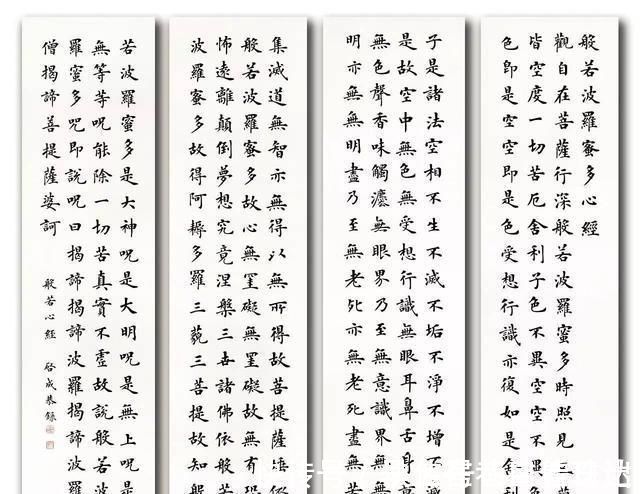 般若波羅蜜多心經
觀自在菩薩行深般若波羅蜜多時照見
皆空度一切苦厄舍利子色不異空空不
色即是空空即是色受想行識亦復如是舍
子是諸法空相不生不滅不垢不淨不增不
是故空中無色無受想行識無眼耳鼻舌身
無色聲香味觸灋無眼界乃至無意識界無
明亦無無明盡乃至無老死亦無老死盡無
集滅道無智亦無得以無所得故菩提薩埵
般若波羅蜜多故心無罣礙無罣礙故無有恐
怖遠離顛倒夢想究竟涅槃三世諸佛依般
波羅蜜多故得阿耨多羅三藐三菩提故知般
若波羅蜜多是大神呪是大明呪是無上呪是
無等等呪能除一切苦真實不虛故說般若波
羅蜜多呪即說呪曰揭諦揭諦波羅揭諦波
僧揭諦菩提薩婆訶
般若心經 啓成恭錄